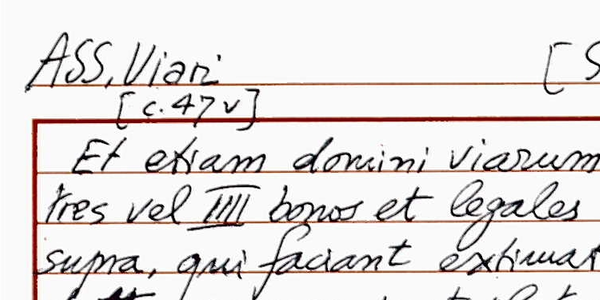 ASS, Viari [ S
[c. 47 v]
Et etiam domini viarum
tres vel IIII bonos et legales
supra, qui faciant extimat